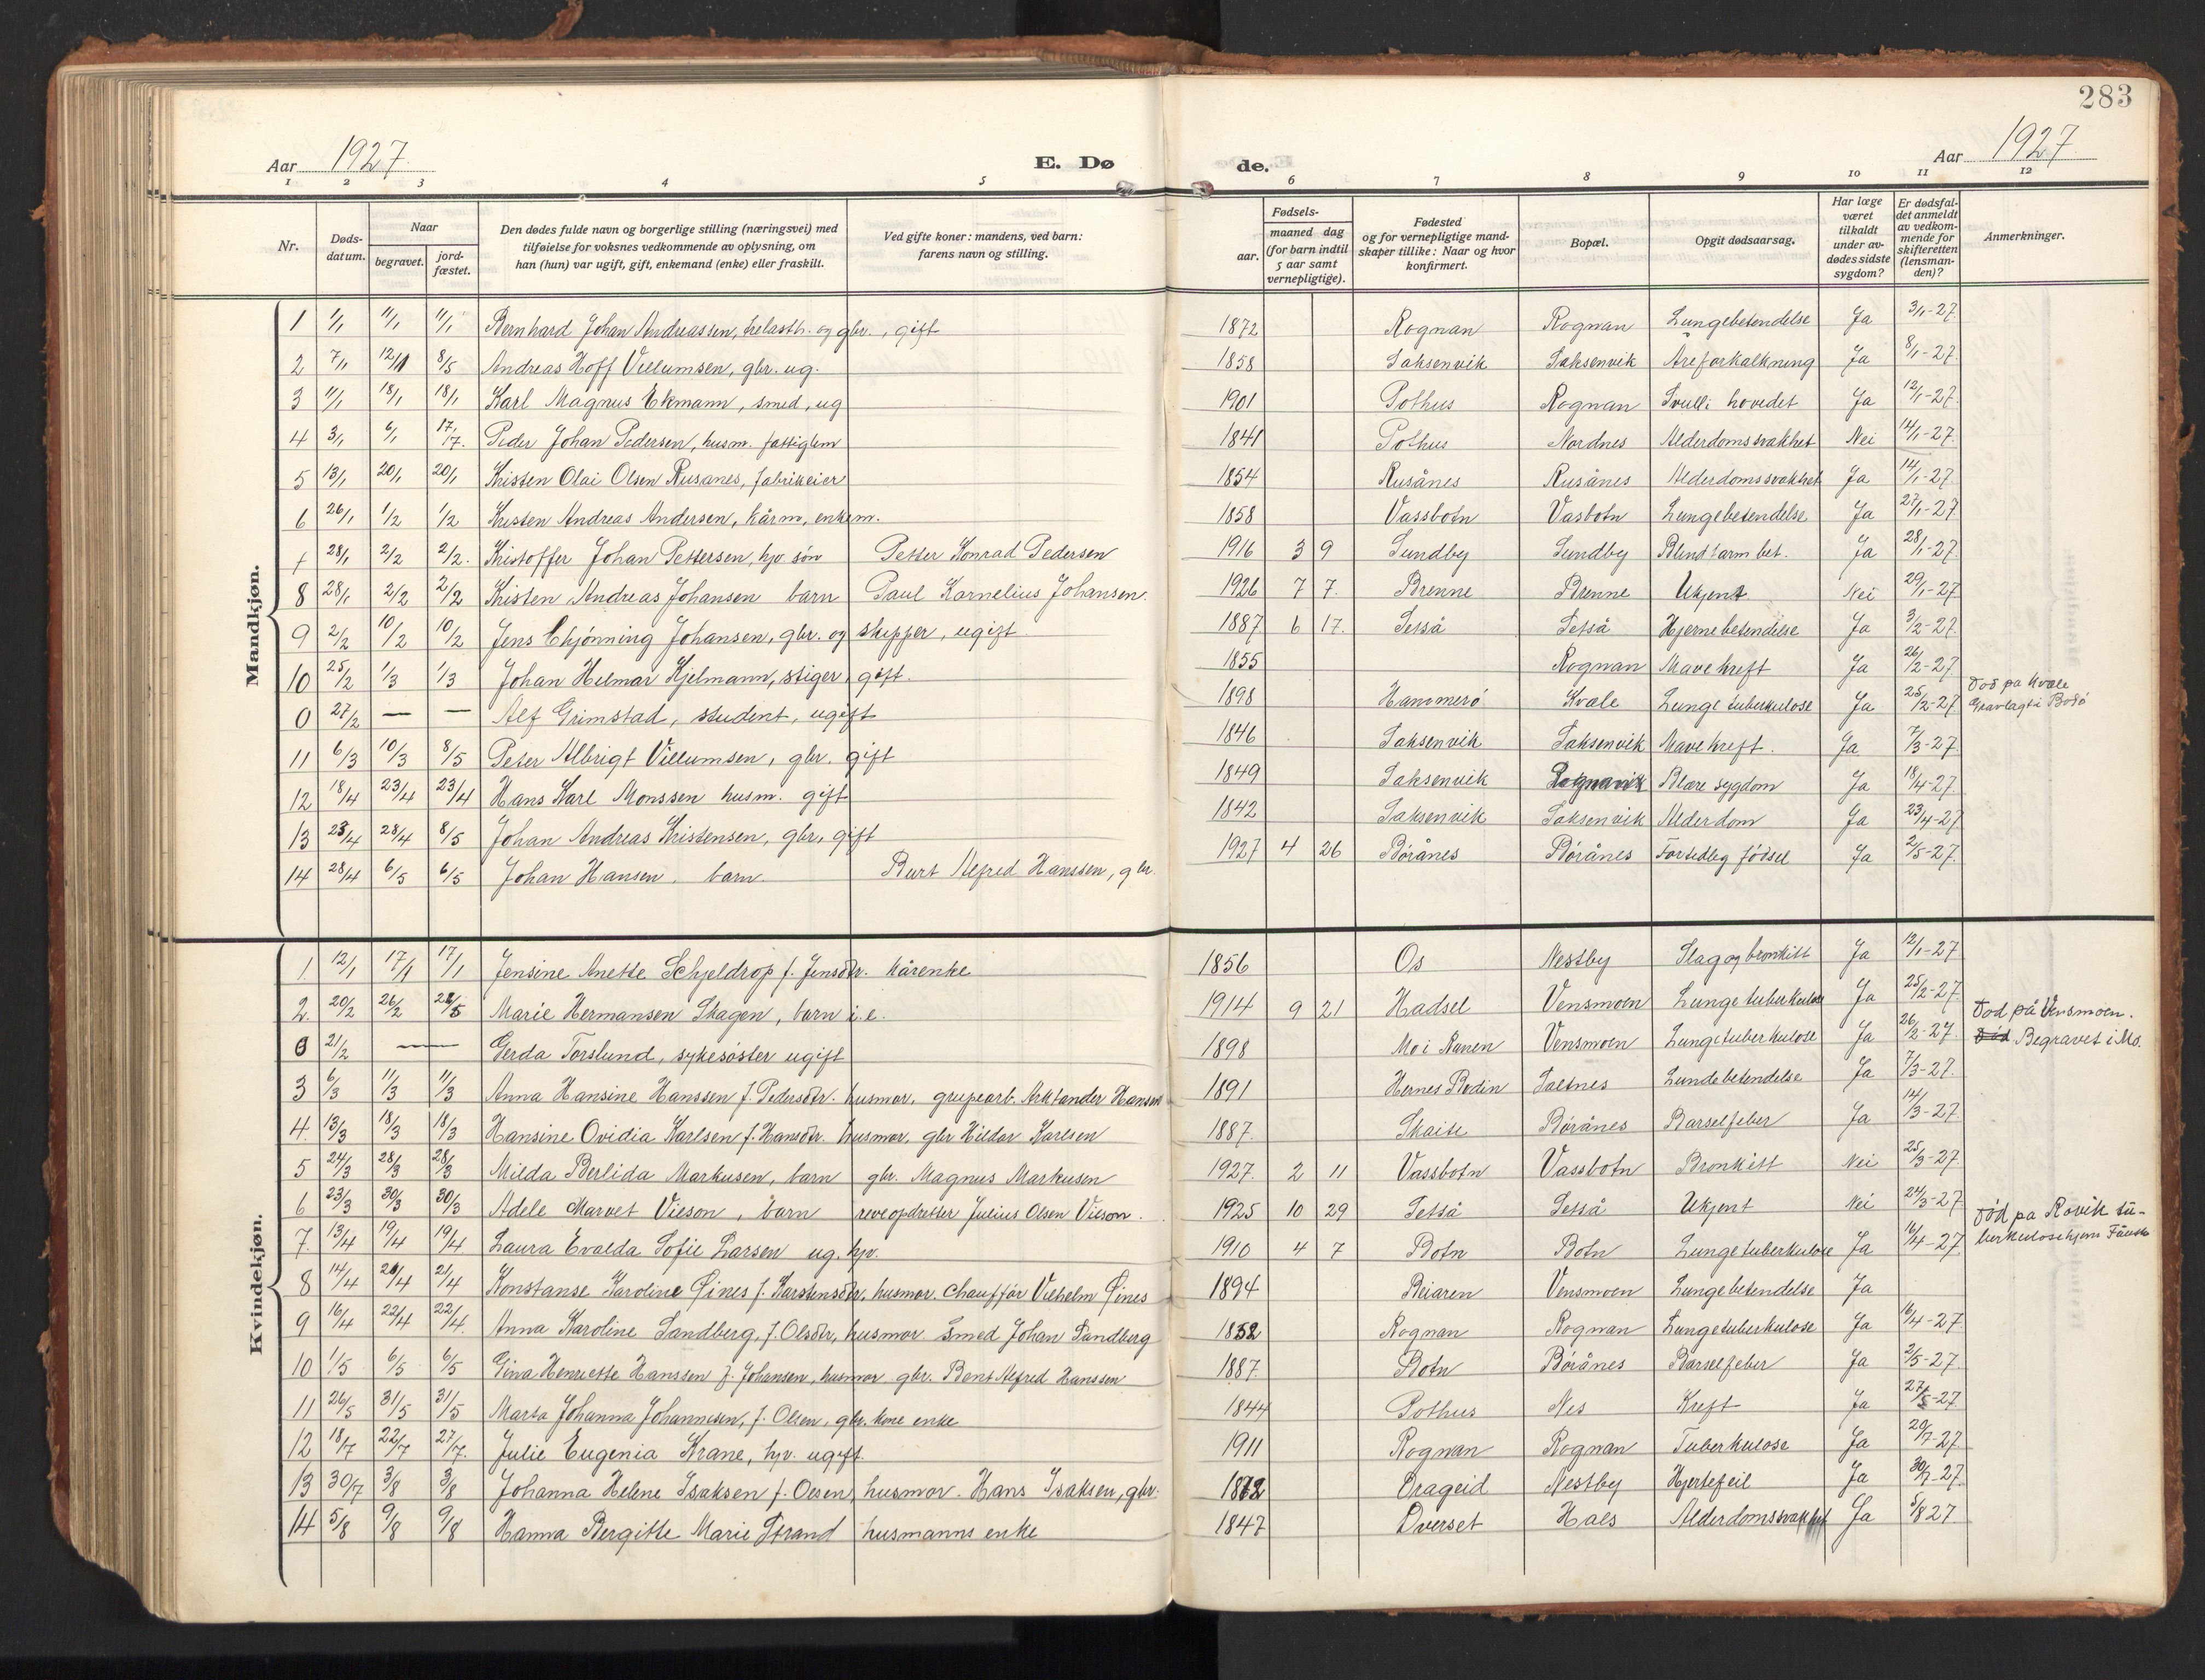 283
Aar 1927. E. Dø de. Aar 1927
1 2 3 4 5 6 7 8 9 10 11 12
Nr. Døds-datum. Naar begravet. jord-fæstet. Den dødes fulde navn og borgerlige stilling (næringsvei) med tilføielse for voksnes vedkommende av oplysning, om han (hun) var ugift, gift, enkemand (enke) eller fraskilt. Ved gifte koner: mandens, ved barn: farens navn og stilling. Fødsels- aar. maaned dag (for barn indtil 5 aar samt vernepligtige). Fødested og for vernepligtige mandskaper tillike: Naar og hvor konfirmert. Bopæl. Opgit dødsaarsag. Har læge været tilkaldt under avdødes sidste sygdom? Er dødsfaldet anmeldt av vedkommende for skifteretten (lensmanden)? Anmerkninger.
Mandkjøn.
1 1/1 11/1 11/1 Bernhard Johan Andreassen, helasth. og gbr., gift 1872 Rognan Rognan Lungebetendelse Ja 3/1-27
2 7/1 12/1 8/5 Andreas Hoff Villumsen, gbr. ug. 1858 Saksenvik Saksenvik Areforkalkning Ja 8/1-27.
3 11/1 18/1 18/1 Karl Magnus Ekmann, smed, ug 1901 Pothus Rognan Svull i hovedet Ja 12/1-27.
4 3/1 6/1 17/17. Peder Johan Pedersen, husm. fattiglem 1841 Pothus Nordnes Alderdomssvakhet Nei 14/1-27.
5 13/1 20/1 20/1 Kristen Olai Olsen Rusanes, fabrikeier 1854 Rusånes Rusånes Alderdomssvakhet Ja 14/1-27.
6 26/1 1/2 1/2 Kristen Andreas Andersen, kårm, enkem. 1858 Vassbotn Vasbotn Lungebetendelse Ja 27/1-27
7 28/1 2/2 2/2. Kristoffer Johan Pettersen, hjv søn Petter Konrad Pedersen 1916 3 9 Sundby Sundby Blindtarm bet. Ja 28/1-27.
8 28/1 2/2 2/2 Kristen Andreas Johansen barn Paul Kornelius Johansen. 1926 7 7. Brenne Brenne Ukjent Nei 29/1-27
9 2/2 10/2 10/2 Jens Chjønning Johansen, gbr. og skipper, ugift. 1887 6 17. Setså Setså Hjernebetendelse Ja 3/2-27.
10 25/2 1/3 1/3 Johan Hilmar Hjelmann, stiger gift. 1855 Rognan Mavekreft Ja 26/2-27
0 27/2 — — Alf Grimstad, student, ugift 1898 Hammerø Kvæle Lungetuberkulose Ja 25/2-27 Død på Kvæle Gravlagt i Bodø
11 6/3 10/3 8/5 Peter Albrigt Villumsen, gbr. gift 1846 Saksenvik Saksenvik Mavekreft. Ja 7/3-27
12 18/4 23/4 23/4 Hans Karl Monssen husm. gift 1849 Saksenvik Blære sygdom Ja 18/4-27.
13 23/4 28/4 8/5 Johan Andreas Kristensen, gbr, gift 1842 Saksenvik Saksenvik Alderdom Ja 23/4-27
14 28/4 6/5 6/5 Johan Hansen. barn. Bert Alfred Hanssen, gbr. 1927 4 26 Børånes Børånes Fortidlig fødsel Ja 2/5-27.
Kvindekjøn.
1. 12/1 17/1 17/1 Jensine Anette Schjeldrop f. Jensdtr. kårenke 1856 Os Nestby Slag og bronkitt Ja 12/1-27
2. 20/2 26/2 28/5 Marie Hermansen Skagen, barn i.e. 1914 9 21 Hadsel Vensmoen Lungetuberkulose Ja 25/2-27 Død på Vensmoen.
0 21/2 — Gerda Torslund, sykesøster ugift 1898 Mo i Ranen Vensmoen Lungetuberkulose Ja 26/2-27. Død Begravet i Mo.
3 6/3 11/3 11/3 Anna Hansine Hanssen f. Pedersdtr. husmor, grupearb. Arktander Hansen 1891 Hernes Bodin Saltnes Lundebetendelse Ja 7/3-27.
4. 13/3 18/3 18/3 Hansine Ovidia Karlsen f. Hansdtr. husmor, gbr Hildor Karlsen 1887. Skaite Børånes Barselfeber Ja 14/3-27.
5 24/3 28/3 28/3 Milda Berlida Markusen, barn gbr. Magnus Markusen 1927. 2 11 Vassbotn Vassbotn Bronkitt Nei 25/3-27.
6 23/3 30/3 30/3 Adele Marvet Vilson, barn reveopdretter Julius Olsen Vilson. 1925 10 29 Setså Setså Ukjent Nei 24/3-27
7. 13/4 19/4 19/4 Laura Evalda Sofie Larsen ug. hjv. 1910 4 7 Botn Botn Lungetuberkulose Ja 16/4-27 Død på Røvik tu-berkulosehjem Fauske
8 14/4 20/4 21/4 Konstanse Karoline Øines f. Karstensdtr, husmor. Chauffør Vilhelm Øines 1894 Beiaren Vensmoen Lungebetendelse Ja
9 16/4 22/4 22/4. Anna Karoline Sandberg, f. Olsdtr, husmor Smed Johan Sandberg 1852 Rognan Rognan Lungetuberkulose Ja 16/4-27.
10 1/5 6/5 6/5 Gina Henriette Hanssen f. Johansen, husmor gbr. Bent Alfred Hanssen 1887. Botn Børånes Barselfeber Ja 2/5-27.
11 26/5 31/5 31/5 Marta Johanna Johannesen, f. Olsen, gbr. kone enke 1844 Pothus Nes Kreft Ja 27/5-27
12 18/7 22/7 27/7. Julie Eugenia Krane, hjv. ugift. 1911 Rognan Rognan Tuberkulose Ja 20/7-27
13 30/7 3/8 3/8 Johanna Helene Isaksen f. Olsen, husmor. Hans Isaksen, gbr. 1872 Drageid Nestby Hjertefeil Ja 30/7-27.
14 5/8 9/8 9/8 Hanna Bergitte Marie Strand husmanns enke 1847 Överset Hals Alderdomssvakhet Ja 5/8 27.